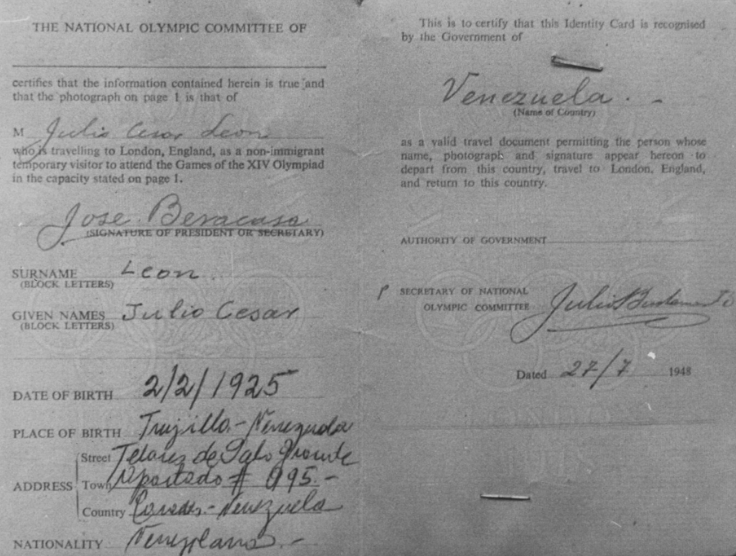 THE NATIONAL OLYMPIC COMMITTEE OF
certifies that the information contained herein is true and
that the photograph on page 1 is that of
M Julio Cesar Leon
who is travelling to London, England, as a non-immigrant
temporary visitor to attend the Games of the XIV Olympiad
in the capacity stated on page 1.
Jose Beracasa
(SIGNATURE OF PRESIDENT OR SECRETARY)
SURNAME Leon
(BLOCK LETTERS)
GIVEN NAMES Julio Cesar
(BLOCK LETTERS)
DATE OF BIRTH 2/2/1925
PLACE OF BIRTH Trujillo-Venezuela
Street Telares de Palo Grande
ADDRESS Town Apartado # 995.-
Country Caracas-Venezuela
NATIONALITY Venezolana.-
This is to certify that this Identity Card is recognised
by the Government of
Venezuela.-
(Name of Country)
as a valid travel document permitting the person whose
name, photograph and signature appear hereon to
depart from this country, travel to London, England,
and return to this country.
AUTHORITY OF GOVERNMENT
SECRETARY OF NATIONAL
OLYMPIC COMMITTEE Julio Bustamente
Dated 27/7 1948